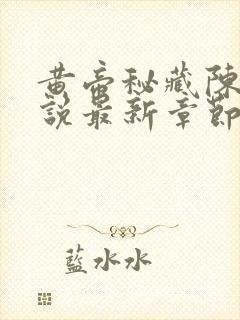 黃帝秘藏陳
說最新章節
藍水水